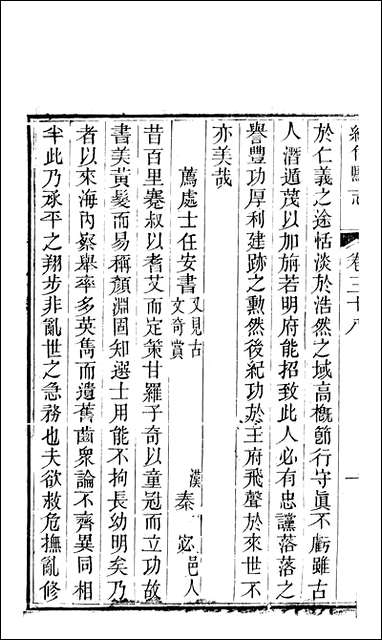 綿竹縣志 卷三十八 一
於仁義之途恬淡於浩然之域高槪節行守眞不虧雖古
人潛遁茂以加旃若明府能招致此人必有忠讜落落之
譽豐功厚利建跡之勲然後紀功於王府飛聲於來世不
亦美哉
薦處士任安書 又見古文奇賞 漢 秦宓 邑人
昔百里蹇叔以耆艾而定策甘羅子奇以童冠而立功故
書美黃髮而易稱顏淵固知選士用能不拘長幼明矣乃
者以來海內察舉率多英雋而遺舊齒衆論不齊異同相
半此乃承平之翔步非亂世之急務也夫欲救危撫亂修